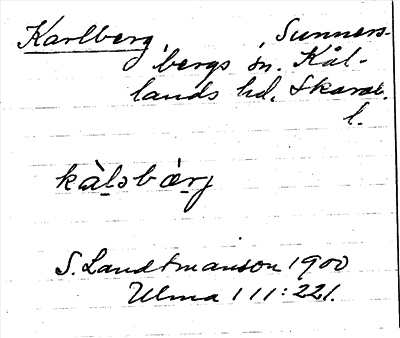 Karlberg Sunners-
bergs sn. Kål-
lands hd. Skarab.
l.
kàləbærj
S. Landtmanson 1900
Ulma 111:221.